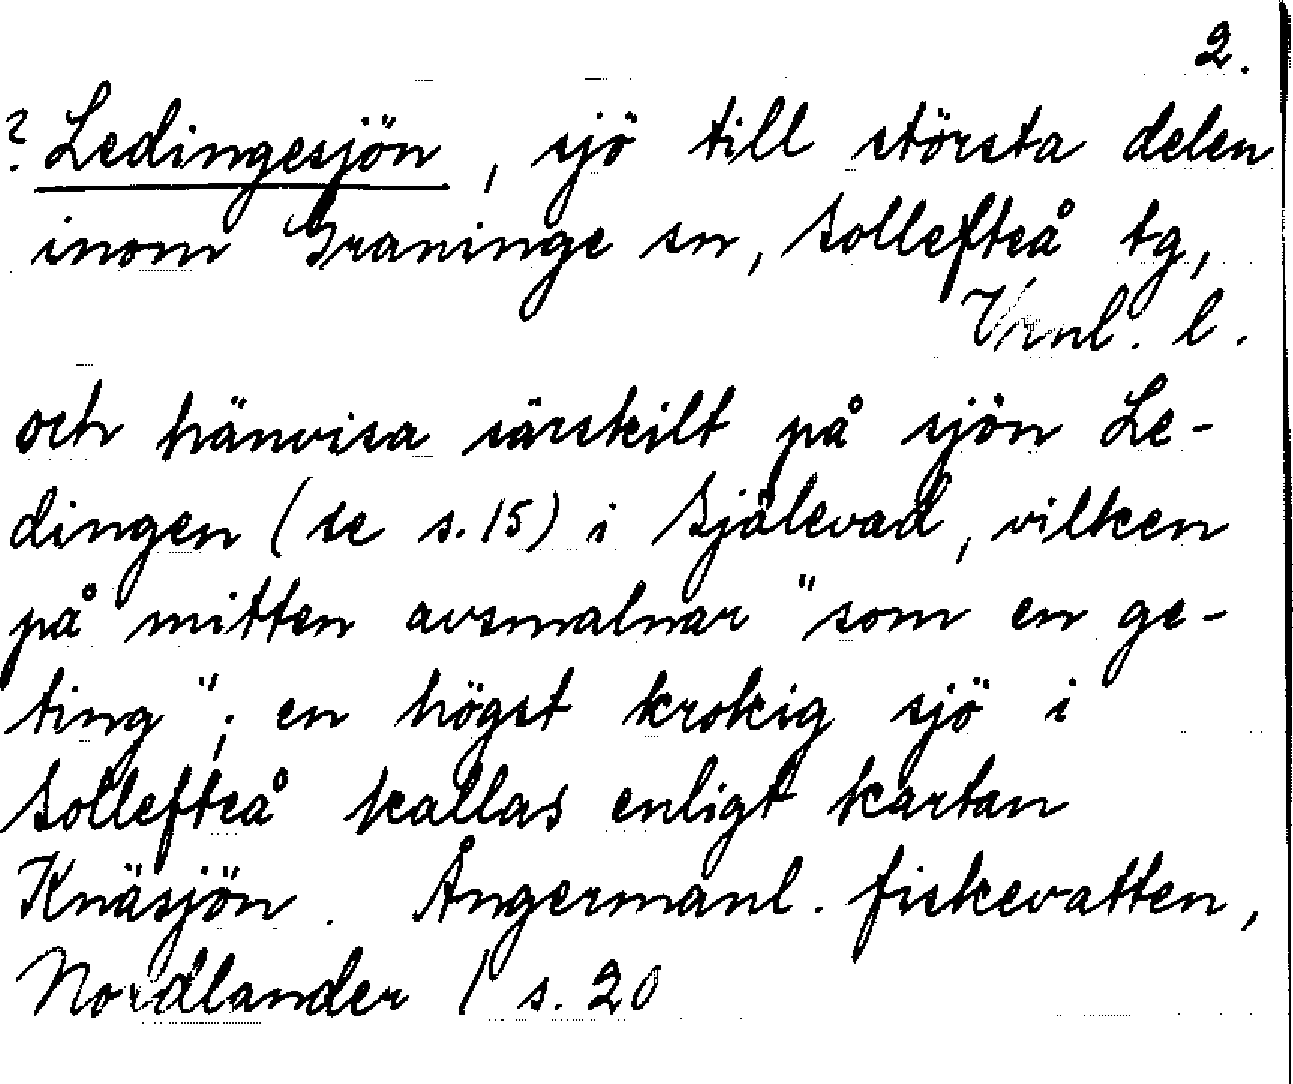 2.
? Ledingesjön, sjö till största delen
inom Graninge sn, Sollefteå tg,
Vrnl. l.
och hänvisa särskilt på sjön Le-
dingen (se s. 15) i Själevad, vilken
på mitten avsmalnar "som en ge-
ting"; en högst krokig sjö i
Sollefteå kallas enligt kartan
Knäsjön. Ångermanl. fiskevatten,
Nordlander 1 s. 20